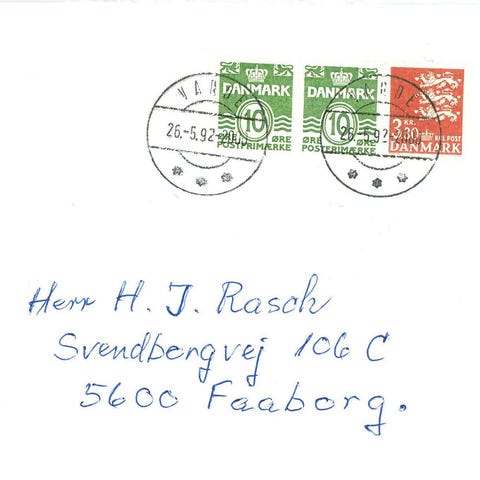 DANMARK
10
ØRE
POSTFRIMÆRKE
DANMARK
10
ØRE ØRE
POSTFRIMÆRKE
3 KR.
30 KGL POST
DANMARK
VARDE
26.-5.92
VARDE
26.-5.92
Herr H. J. Rasch
Svendborgvej 106 C
5600 Faaborg.